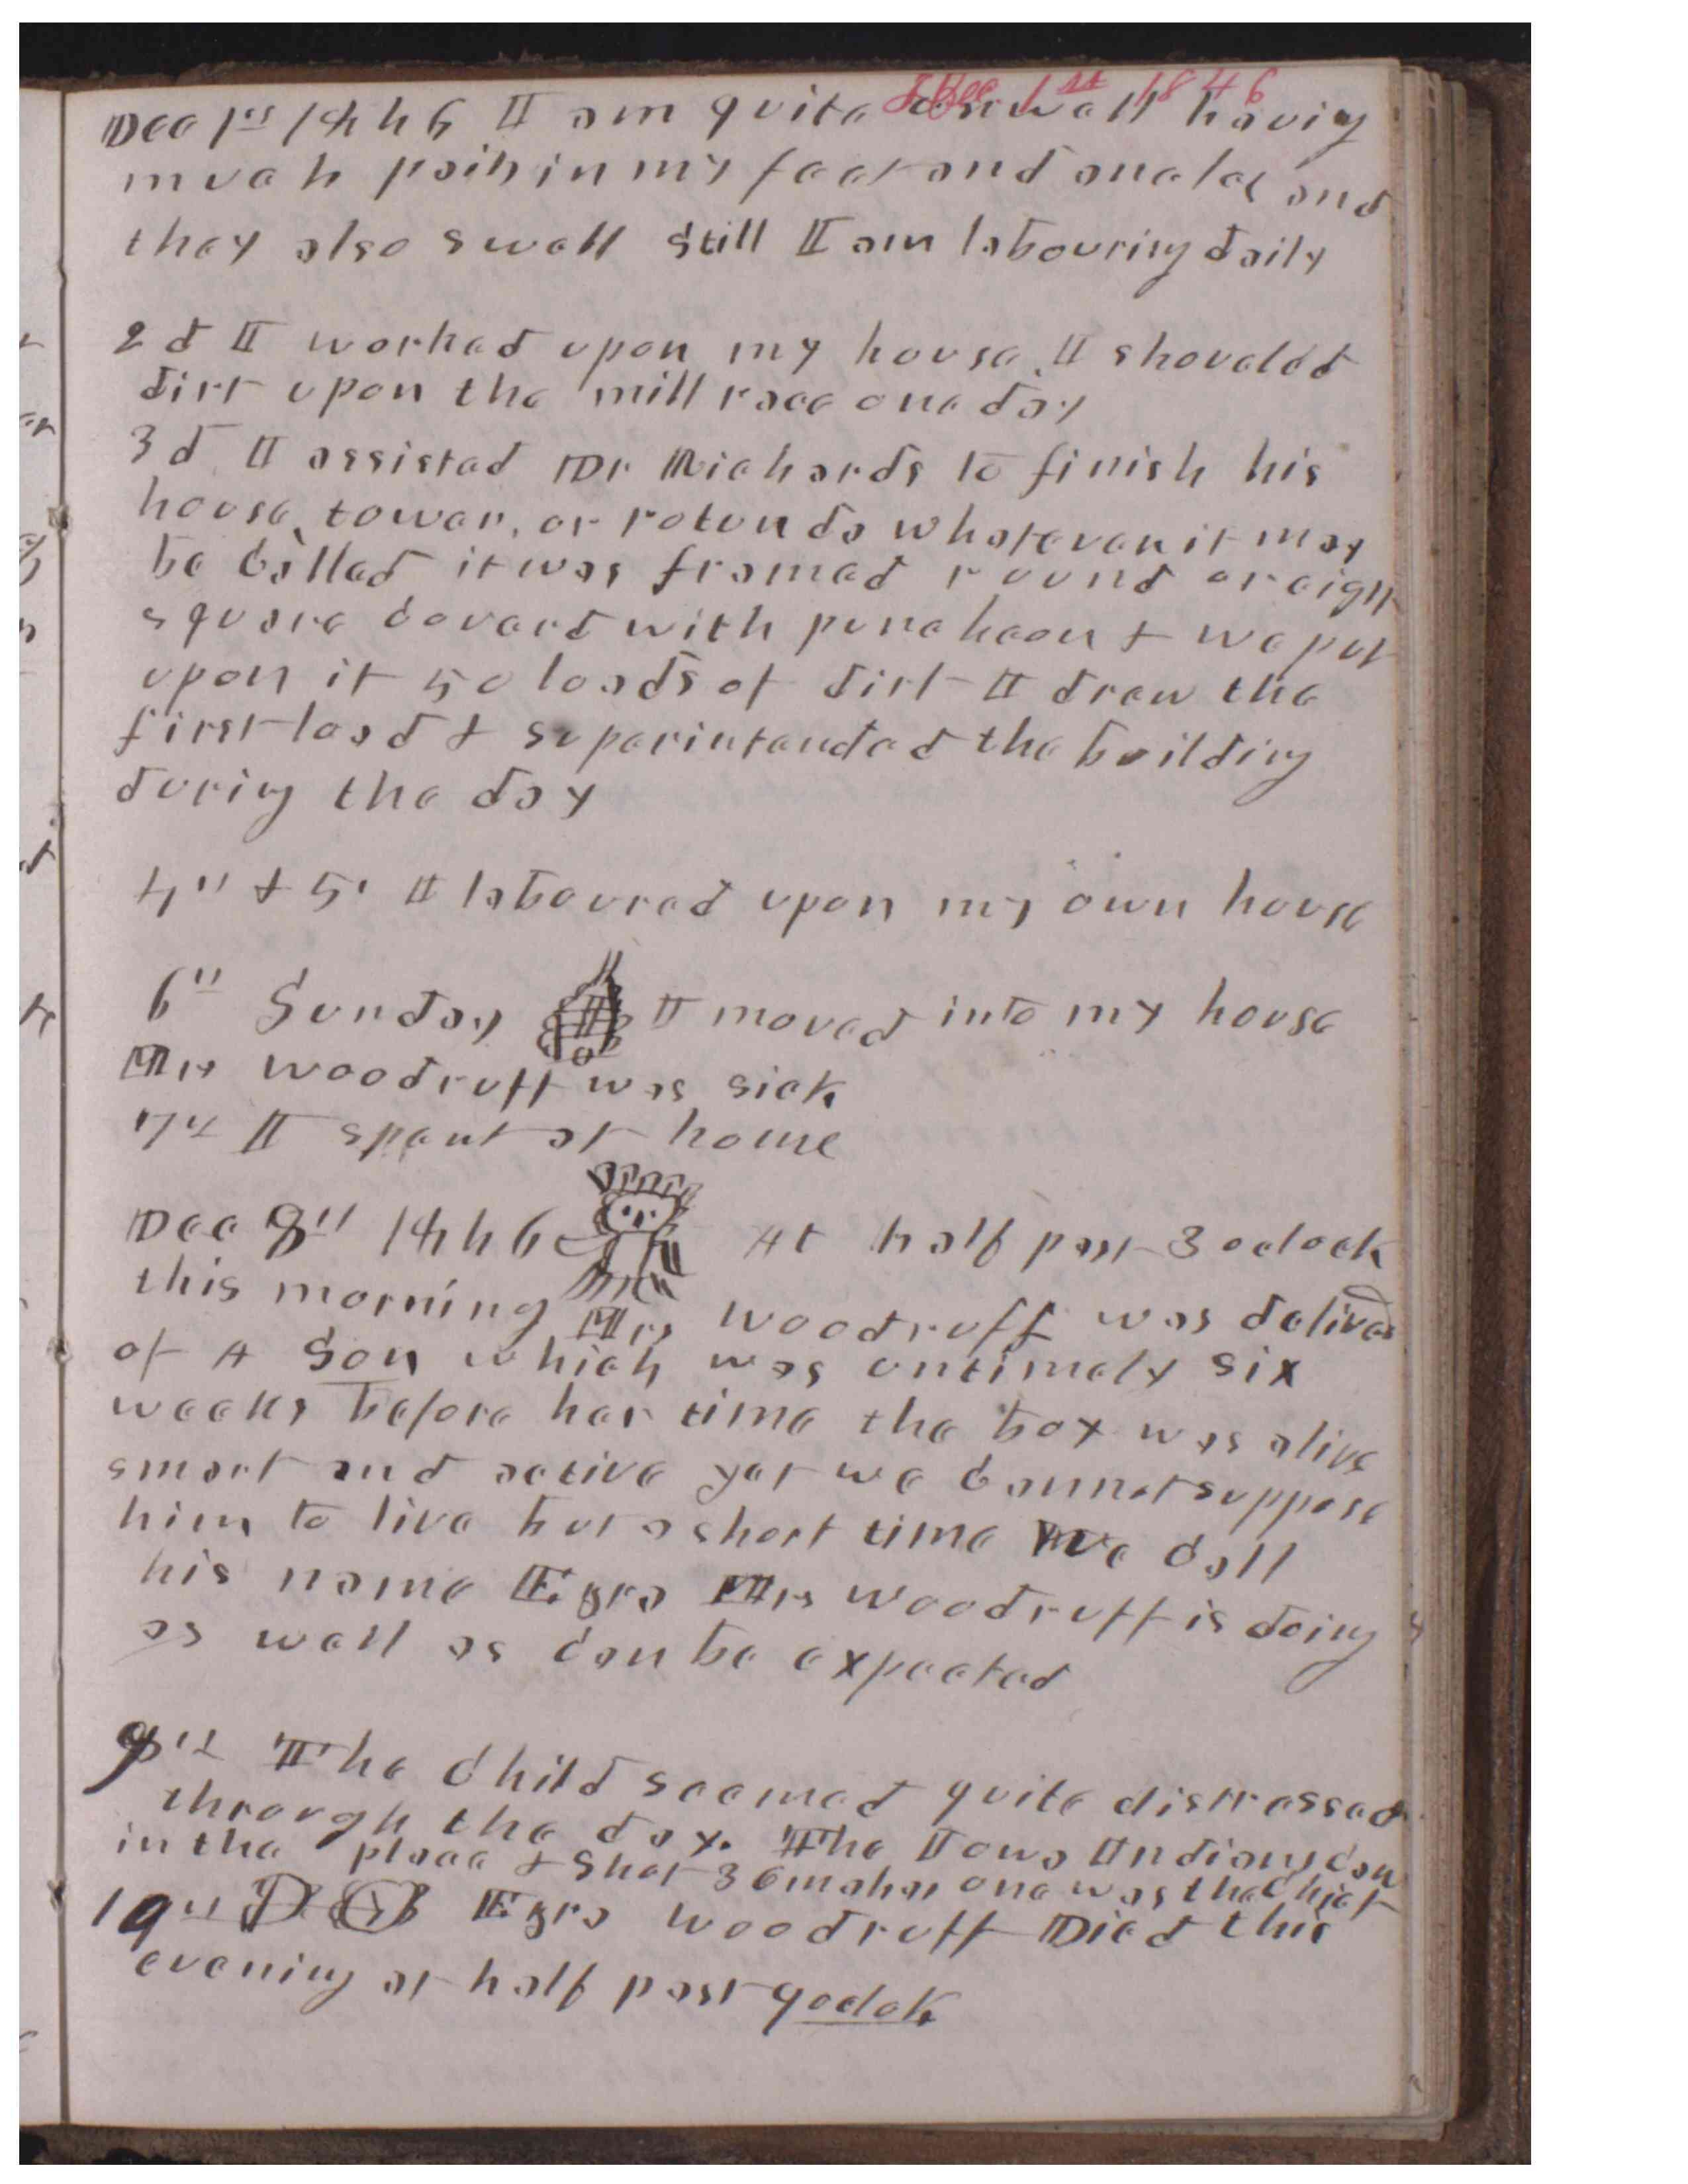 Dec 1st 1846
Dec 1st 1846 I am quite unwell having
much pain in my feet and ancles and
they also swell still I am labouring daily
2d I worked upon my house. I shoveled
dirt upon the mill race one day
3d I assisted Dr Richards to finish his
house, tower, or rotunda whatever it may
be called it was framed round or eight
square coverd with puncheon & we put
upon it 50 loads of dirt I drew the
first load & superintended the building
during the day
4th & 5th I laboured upon my own house
6th Sunday I moved into my house
Mrs Woodruff was sick
7th I spent at home
Dec 8th 1846 At half past 3 oclock
this morning Mrs Woodruff was deliverd
of A Son which was untimely six
weeks before her time the boy was alive
smart and active yet we cannot suppose
him to live but a short time We call
his name Ezra Mrs Woodruff is doing
as well as can be expected
9th The Child seemed quite distressed
through the day. The Iowa Indians can
in the place & shot 3 Omahas one was the Chief
10th Ezra Woodruff Died this
evening at half past 9 oclok